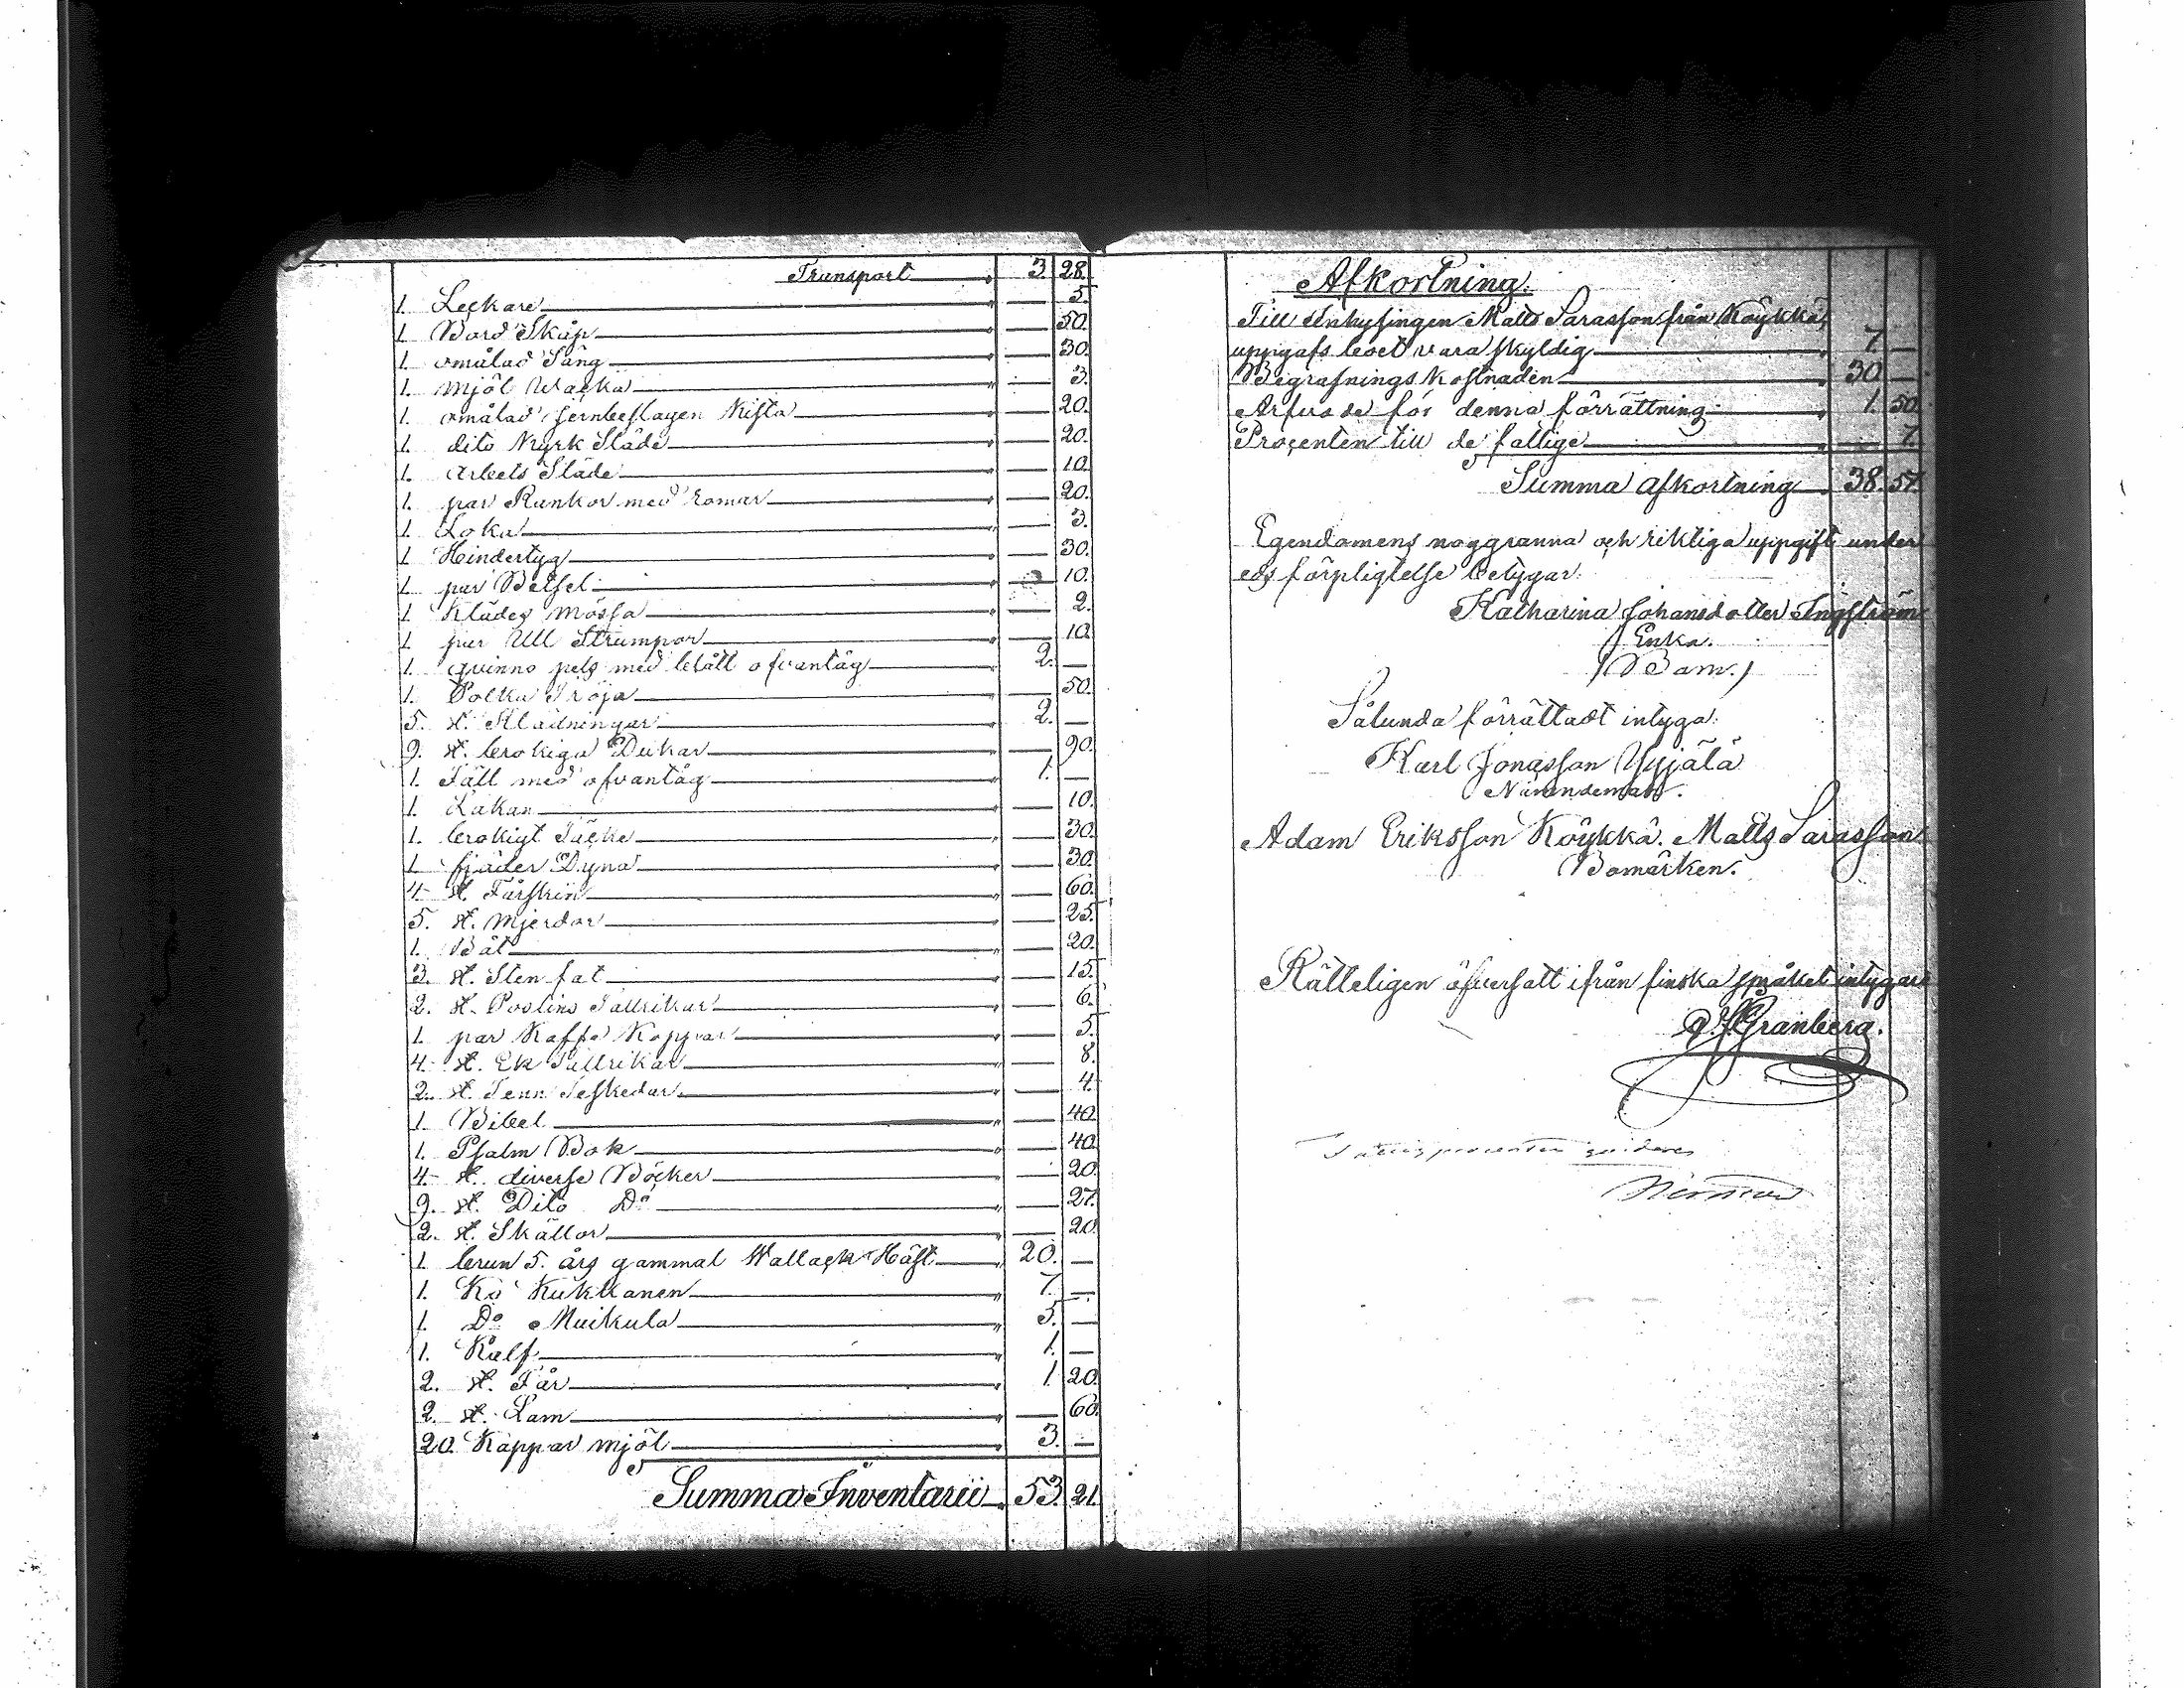 Transport 3. 28.
1. Leckare 5.
1. Bord Skåp 50.
1. omålad Säng 30.
1. Mjöl Wacka 3.
1. omålad jernbeslagen Kista 20.
1. dito Kyrk Släde 20.
1. Arbets Släde 10.
1. par Rankor med Romar 20.
1. Loka 3.
1. Hindertyg 30.
1. par Betsel 10.
1. Klädes Mössa 2.
1. par Ull Strumpor 10.
1. qvinno pels med blått ofvantåg 2. —
1. Polka Tröja 50.
5. st. Klädningar 2. —
9. st. brokiga Dukar 90.
1. Fäll med ofvantåg 1. —
1. Lakan 10.
1. brokigt Täcke 30.
1. fjäder Dyna 30.
4. st. Fårskin 60.
5. st. Mjerdar 25.
1. Båt 20.
3. st. Sten fat 15.
2. st. Poslins Tallrikar 6.
1. par Kaffe Koppar 5.
4. st. Ek Tallrikar 8.
2. st. Tenn Teskedar 4.
1. Bibel 40.
1. Psalm Bok 40.
4. st. diverse Böcker 20.
9. st. Dito Do 27.
2. st. Skällor 20.
1. brun 5. års gammal Wallack Häst 20. —
1. Ko Kukkanen 7. —
1. Do Muikula 5. —
1. Kalf 1. —
2. st. Får 1. 20.
2. st. Lam 60.
20. Kappar mjöl 3. —
Summa Inventarii 53. 21.
Afkortning.
Till Inhysingen Matts Sarasson från Köykkä,
uppgafs boet vara skyldig 7. —
Begrafnings Kostnaden 30 —
Arfvode för denna förrättning 1. 50.
Procenten till de fattige 7.
Summa afkortning 38. 57.
Egendomens noggranna och riktiga uppgift under
eds förpligtelse betygar.
Katharina Johansdotter Ingström
Enka.
(Bom.)
Sålunda förrättadt intyga:
Karl Jonasson Yijälä
Nämndeman.
Adam Eriksson Köykkä. Matts Sarasson
Bomärken.
Rätteligen öfversatt ifrån finska språket intygar
Granberg.